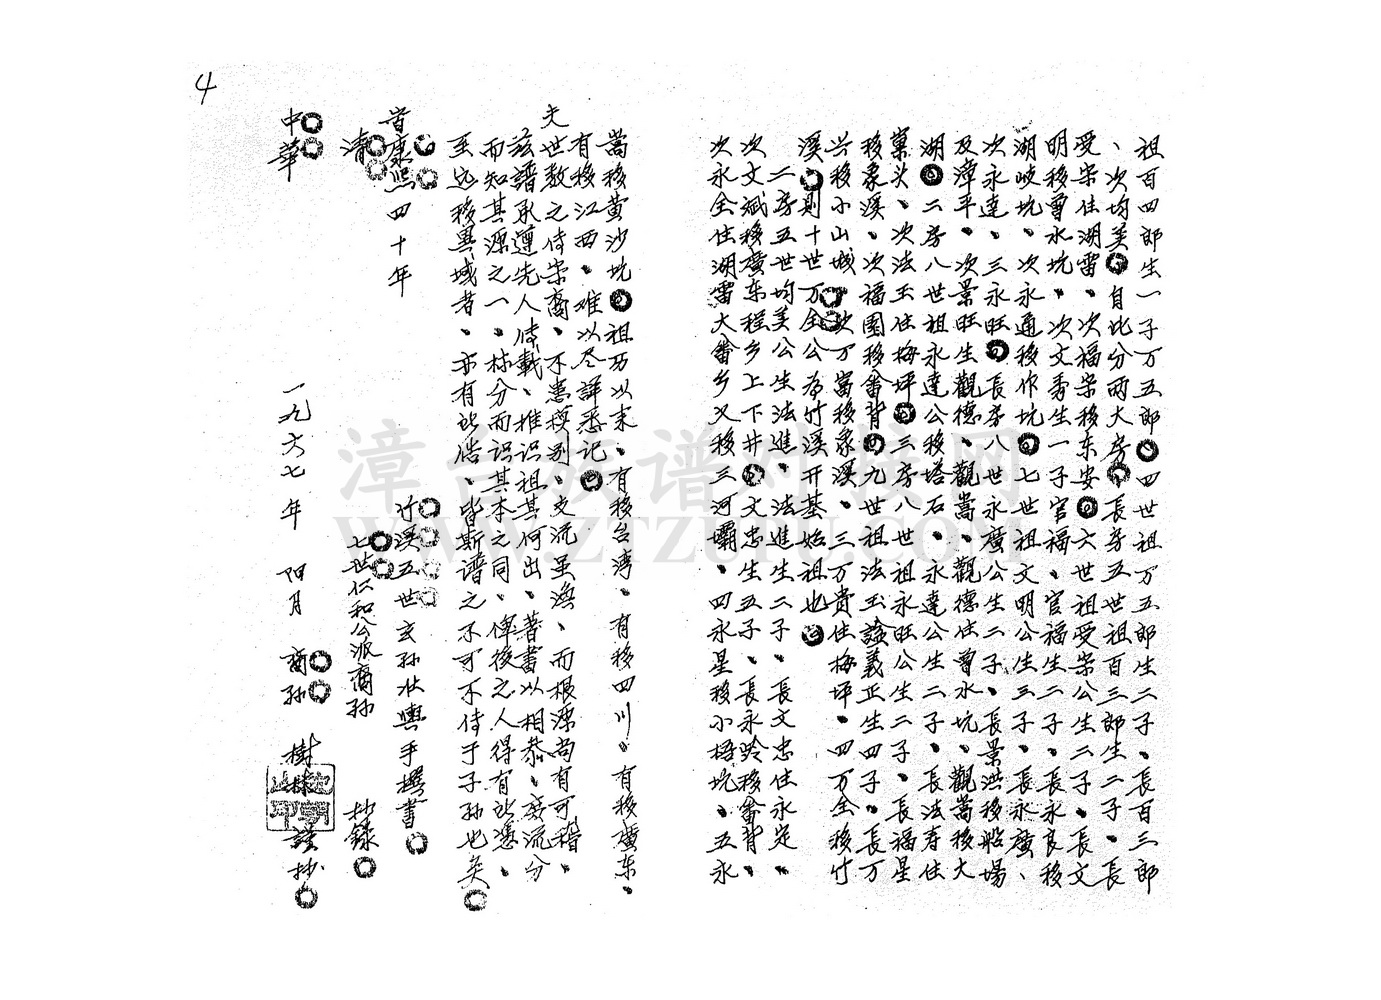 4
祖百四郎生一子万五郎 四世祖万五郎生二子、長百三郎
、次均美 自比分兩大房 長房五世祖百三郎生二子、長
受宗住湖雷、次福宗移东安 六世祖受宗公生二子、長文
明移曾水坑、次文秀生一子官福、官福生二子、長永良移
湖岐坑、次永通移作坑 七世祖文明公生三子、長永廣、
次永達、三永旺 長房八世永廣公生二子、長景洪移船場
及漳平、次景旺生觀德、觀嵩、觀德住曾水坑、觀嵩移大
湖 二房八世祖永達公移塔石、永達公生二子、長法寿住
菓头、次法玉住梅坪 三房八世祖永旺公生二子、長福星
移象溪、次福園移畲背 九世祖法玉諡義正生四子、長万
兴移小山城、次万富移象溪、三万貴住梅坪、四万全移竹
溪 則十世万全公為竹溪开基始祖也
二房五世均美公生法進、法進生二子、長文忠住永定、
次文斌移廣东程乡上下井 文忠生五子、長永玲移畲背、
次永全住湖雷大畲乡又移三河壩、四永星移小梧坑、五永
嵩移黄沙坑 祖历以来、有移台湾、有移四川、有移廣东、
有移江西、难以尽詳悉记
夫世教之侍宗裔、不患模别、支流虽渙、而根源尚有可稽、
兹譜承遵先人侍載、推识祖其何出、著書以相恭、序流分
而知其源之一、枝分而识其本之同、俾後之人得有所憑、
至远移異域者、亦有所倍、皆斯譜之不可不侍于子孫也矣
昔康熙四十年 竹溪五世玄孙壯興手撰書
清 七世仁和公派裔孙 抄録
中華 一九六七年 阳月 裔孙 樹林 謹抄
漳台族谱对接网
WWW.ZTZUPU.COM